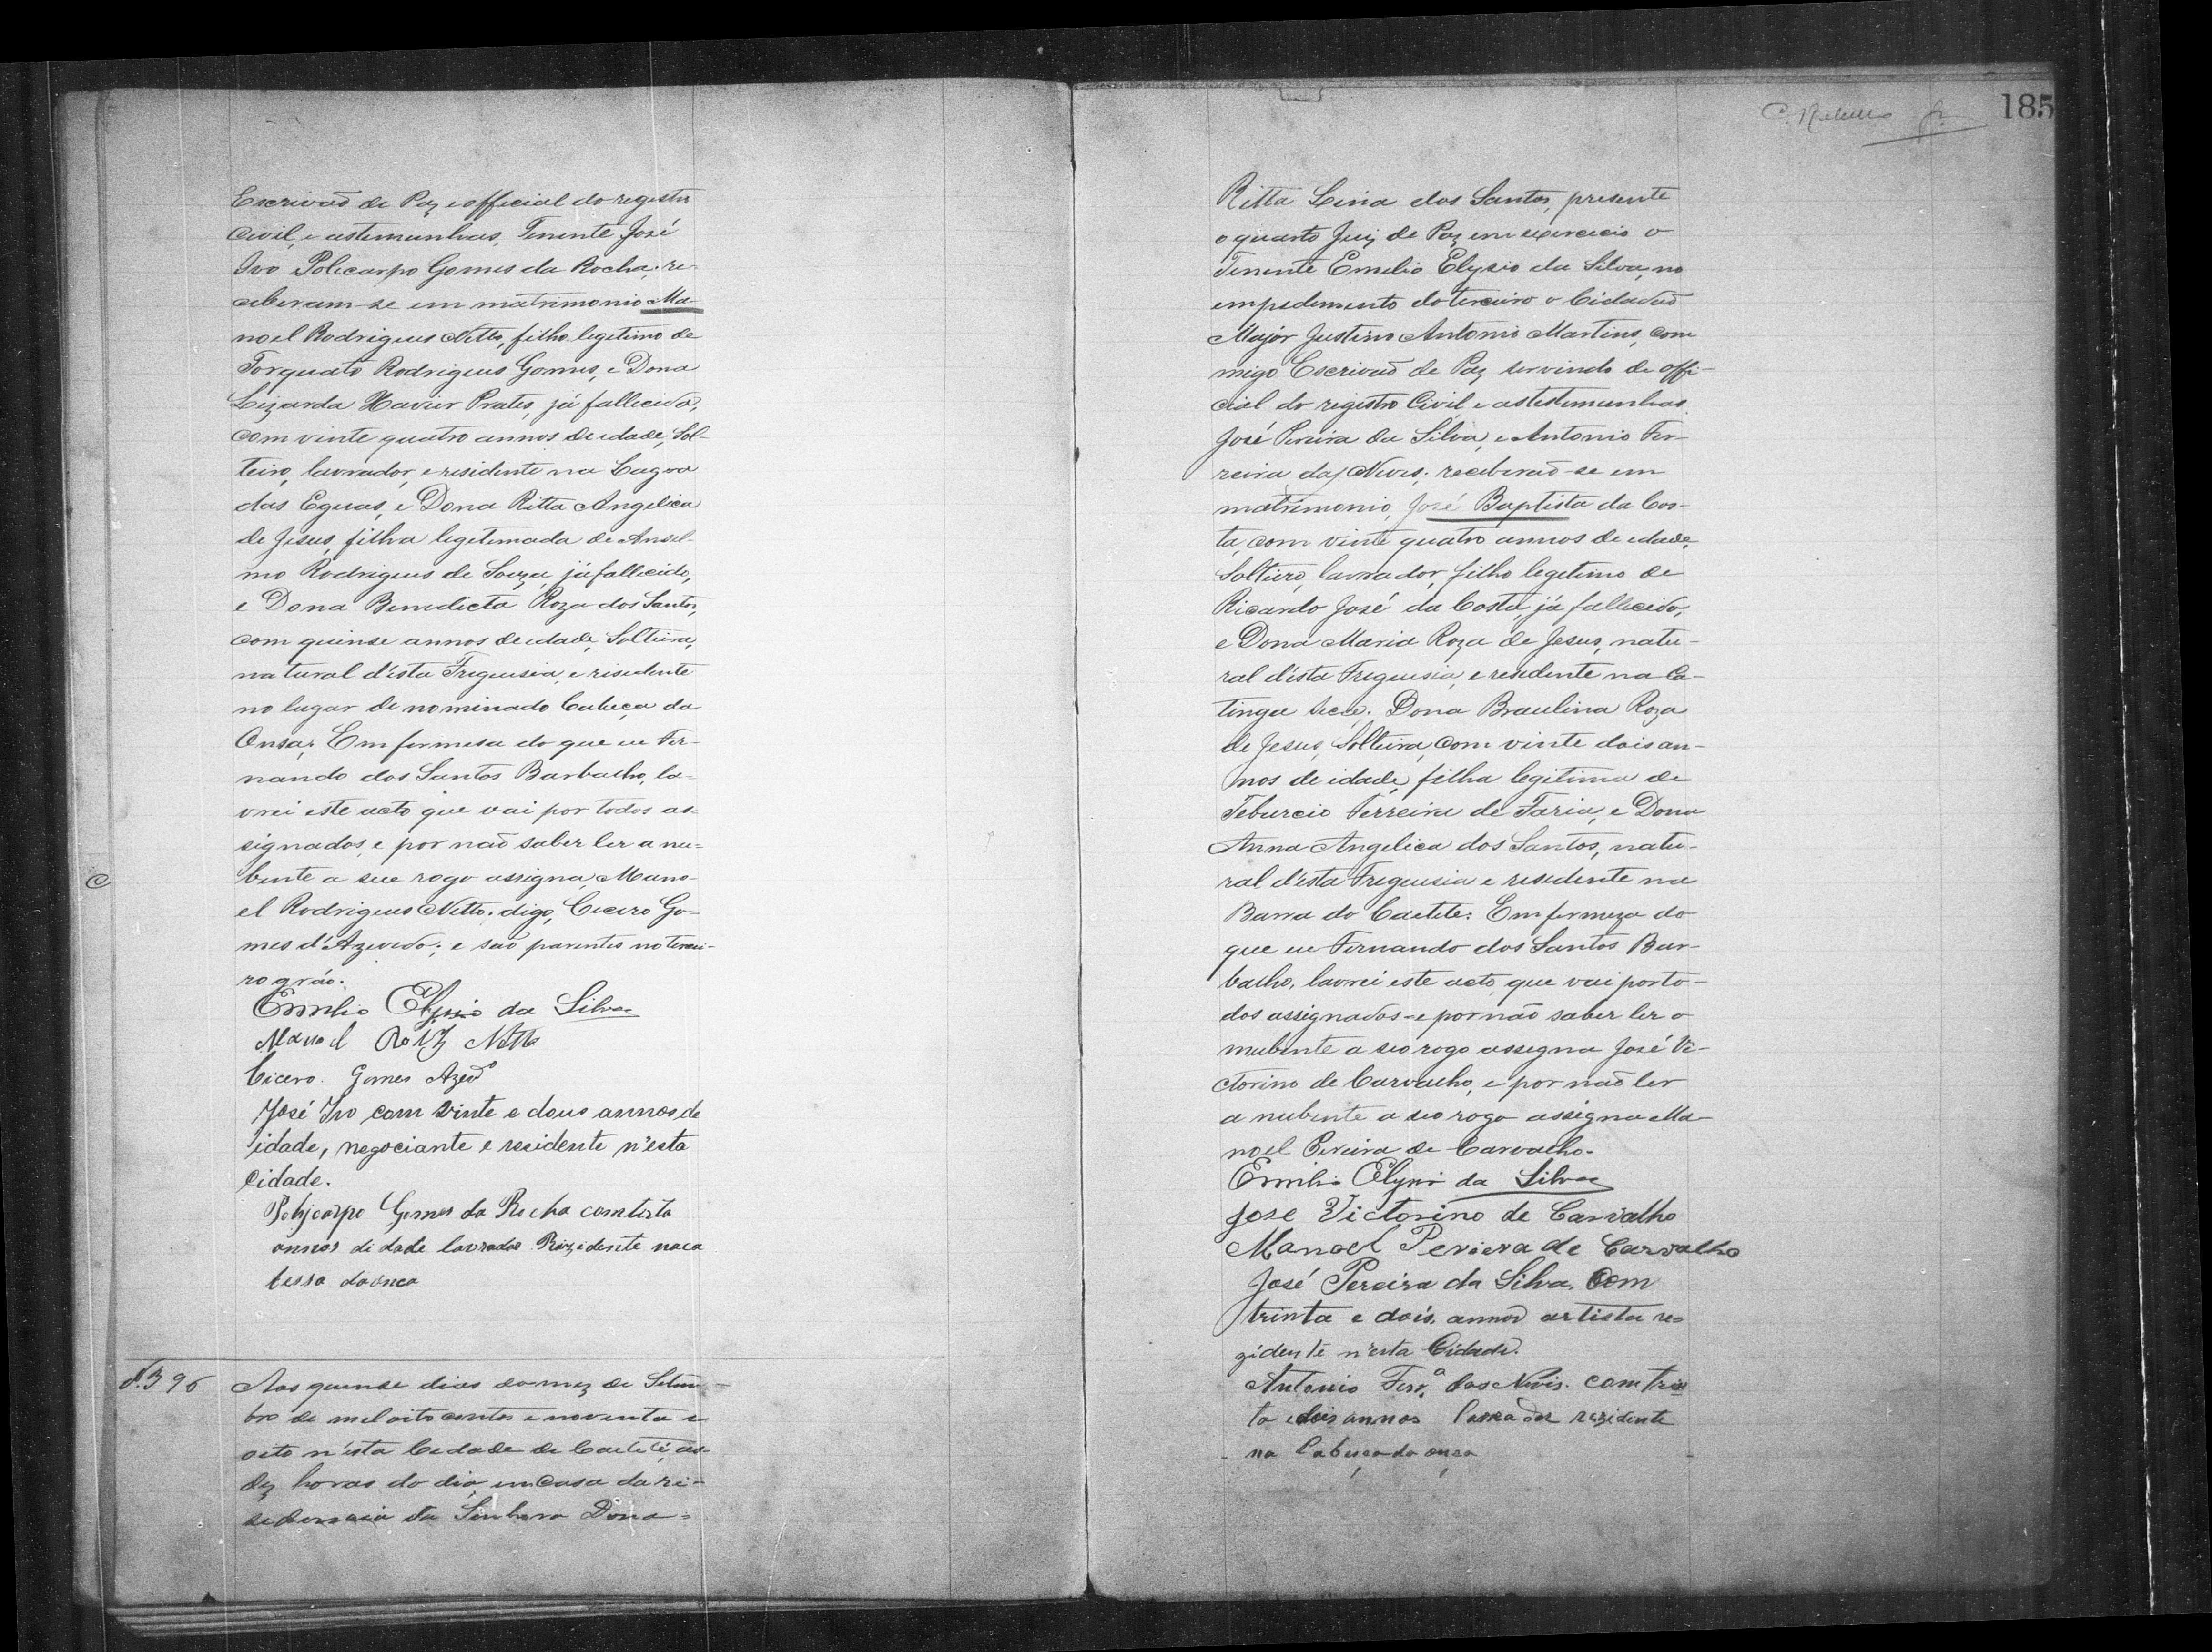 Escrivaõ de Paz e official do registro
Civil, e astemunhas, Tenente José
Ivo Policarpo Gomes da Rocha; re-
ceberam-se em matrimonio Ma-
noel Rodrigues Netto, filho legitimo de
Torquato Rodrigues Gomes, e Dona
Lizarda Xavier Prates, já fallecida,
com vinte quatro annos de idade, Sol-
teiro, lavrador, e residente na Lagoa
das Eguas, e Dona Ritta Angelica
de Jesus, filha legetimada de Ansel-
mo Rodrigues de Souza, já fallecido,
e Dona Benedicta Roza dos Santos,
com quinse annos de idade, Solteira,
natural d'esta Freguesia, e risidente
no lugar de nominado Cabeça da
Onsa; Em firmesa do que eu Fer-
nando dos Santos Barbalho, la-
vrei este acto que vai por todos as-
signados, e por naõ saber ler a nu-
bente a seu rogo assigna, Mano-
el Rodrigues Netto, digo, Cicero Go-
mes d'Azevedo; e saõ parentes no tercei-
ro gráo.
Emilio Elysio da Silva
Manoel Netto
Cicero Gomes Azedº
José Ivo com vinte e dous annos de
idade, negociante e residente n'esta
Cidade.
Polycarpo Gomes da Rocha com trita
annos di dade lavrador Rizidente naca
bessa da onca
N. 396 Aos quinse dias do mez de Setem-
bro de mil oito centos e noventa e
oito n'esta Cedade de Caeteté, as
dez horas do dia, em Casa da re-
sidencia da Senhora Dona
185
Ritta Lina dos Santos, presente
o quarto Juiz de Paz em exercicio o
Tenente Emilio Elysio da Silva, no
empedimento do terceiro o Cidadaõ
Majór Justino Antonio Martins, com
migo Escrivaõ de Paz servindo de offi-
cial do registro Civil, e astestemunhas
José Pereira da Silva, e Antonio Fer-
reira das Neves; receberaõ-se em
matrimonio, José Baptista da Cos-
ta, com vinte quatro annos de idade,
Solteiro, lavrador, filho legetimo de
Ricardo José da Costa já fallecido,
e Dona Maria Roza de Jesus, natu-
ral d'esta Freguesia, e residente na Ca-
tinga Dona Braulina Roza
de Jesus, Solteira, com vinte dois an-
nos de idade, filha legitima de
Teburcio Ferreira de Faria, e Dona
Anna Angelica dos Santos, natu-
ral d'esta Freguesia e residente na
Barra do Caetete: Em firmeza do
que eu Fernando dos Santos Bar-
balho, lavrei este acto que vai porto-
dos assignados e por naõ saber ler o
nubente a seo rogo assigna José Vi-
ctorino de Carvalho, e por naõ ler
a nubente a seo rogo assigna Ma-
noel Pereira de Carvalho.
Emilio Elysio da Silva
Jose Victorino de Carvalho
Manoel Periera de Carvalho
José Pereira da Silva, Com
trinta e dois, annos artista re-
zidente n'esta Cidade.
Antonio Ferrª das Nevis. com trin
ta e dois annos Lavrador rezidente
na Cabeça da onça